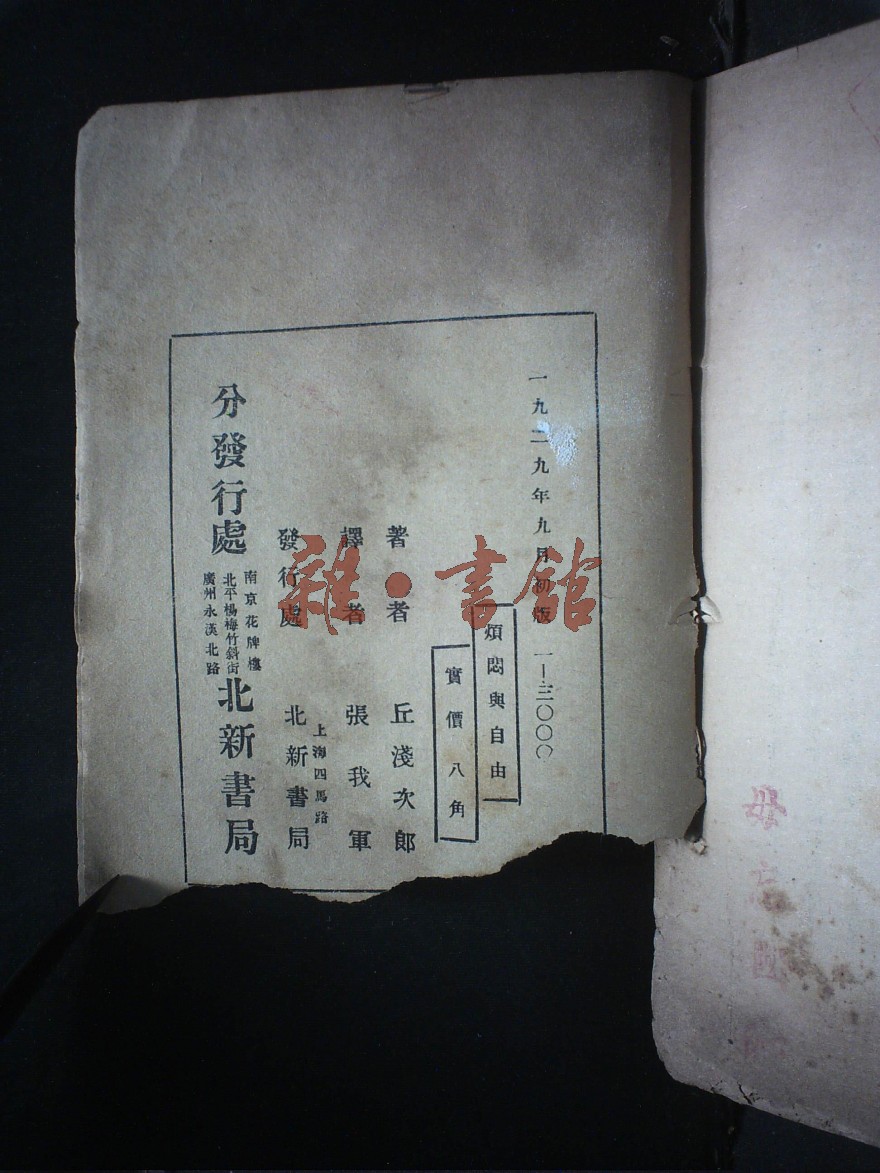 一九二九年九月初版 一—三〇〇〇
煩悶與自由
實價八角
著者 丘淺次郎
譯者 張我軍
發行處 上海四馬路 北新書局
分發行處 南京花牌樓 北平楊梅竹斜街 廣州永漢北路 北新書局
雜·書館
毋忘國